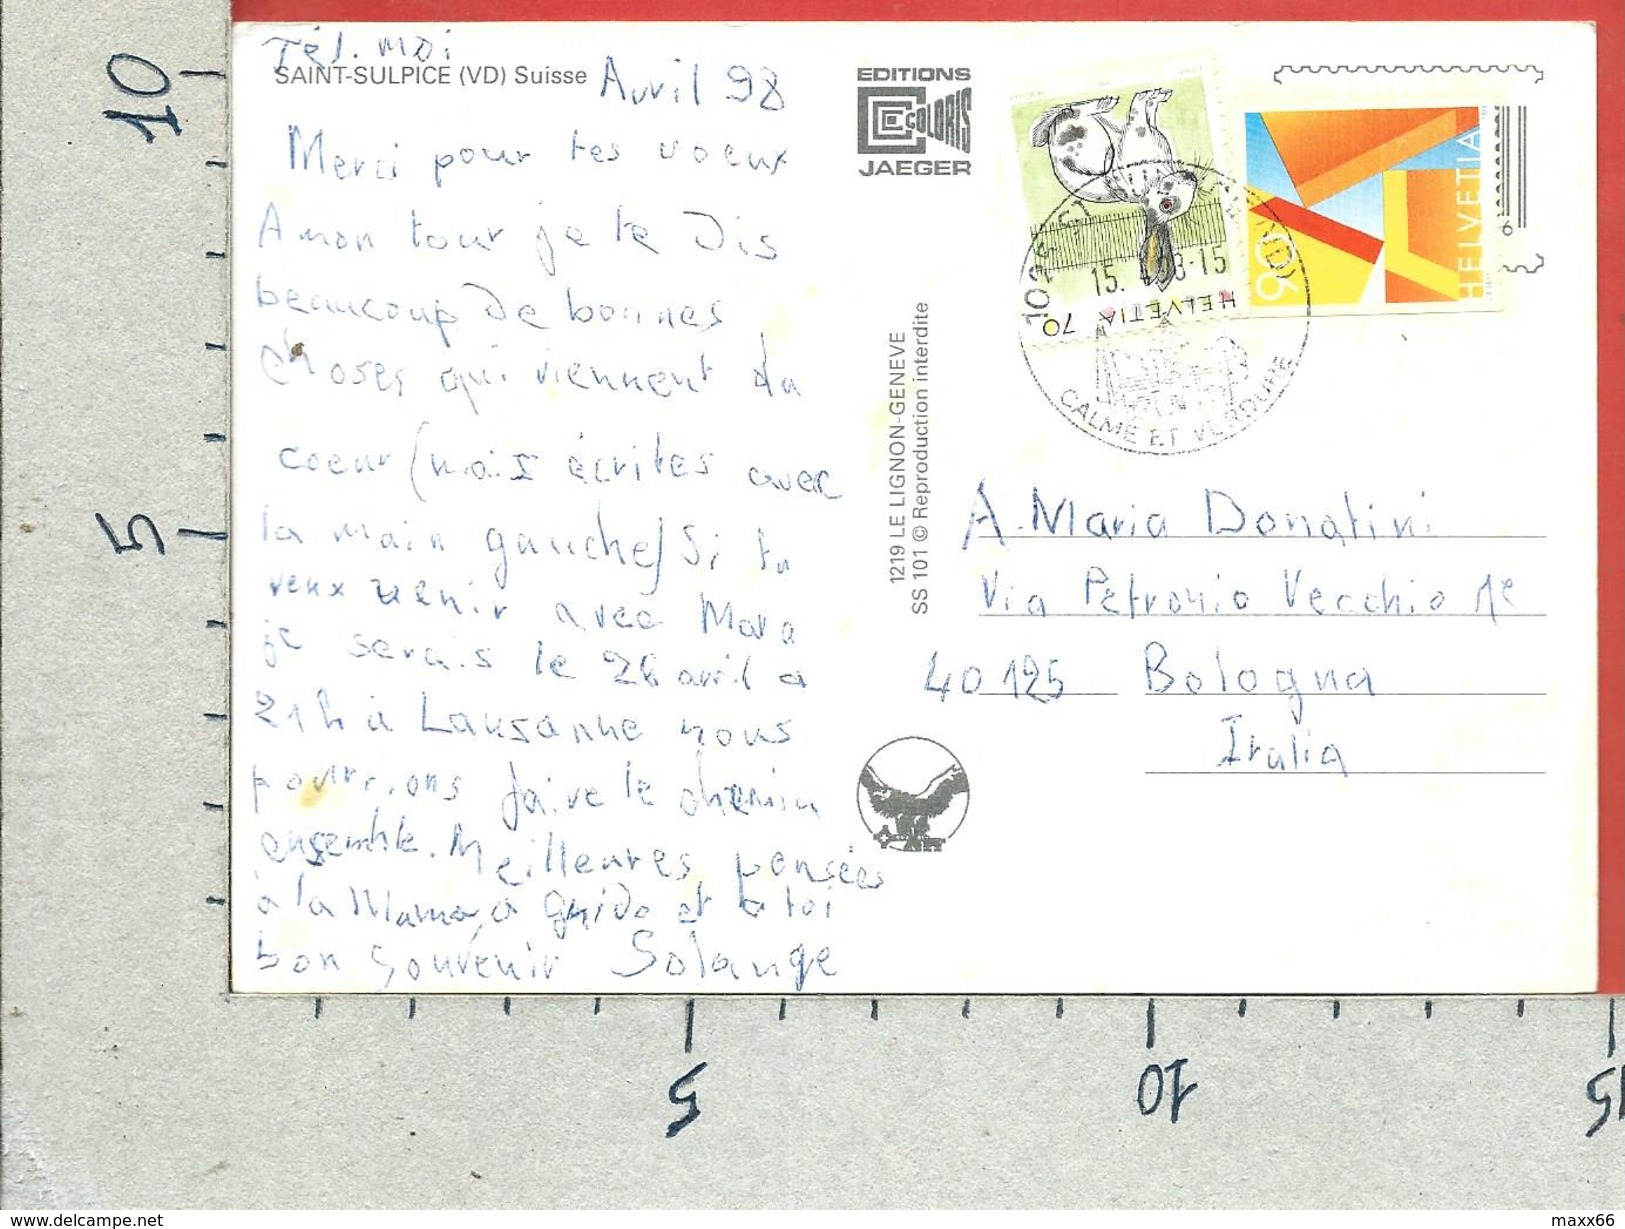 Tél. moi
SAINT-SULPICE (VD) Suisse
Avril 98
Merci pour tes voeux
A mon tour je te Dis
beaucoup De bonnes
choses qui viennent du
coeur (mais écrites avec
la main gauche) Si tu
veux venir avec Mara
je serais le 26 avril a
21h à Lausanne nous
pourrions faire le chemin
ensemble. Meilleures pensées
à la Mama, à Guido et à toi
bon souvenir Solange
EDITIONS
COLORIS
JAEGER
1219 LE LIGNON-GENEVE
SS 101 © Reproduction interdite
HELVETIA 70
HELVETIA
90
6
1025 ST
15. 4.98-15
CALME ET VERDURE
A Maria Donatini
Via Petronio Vecchio 1e
40125 Bologna
Italia
10
5
5
10
15
maxx66
www.delcampe.net